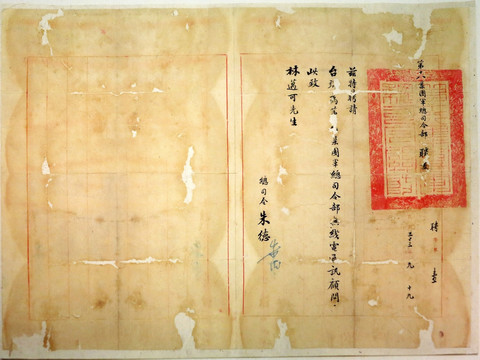 第十八集團軍總司令部
聘 壹
三十三 九 十九
茲特聘請
台 為 八集團軍總司令部無綫電 訊顧問。
此致
林邁可先生
總司令 朱德